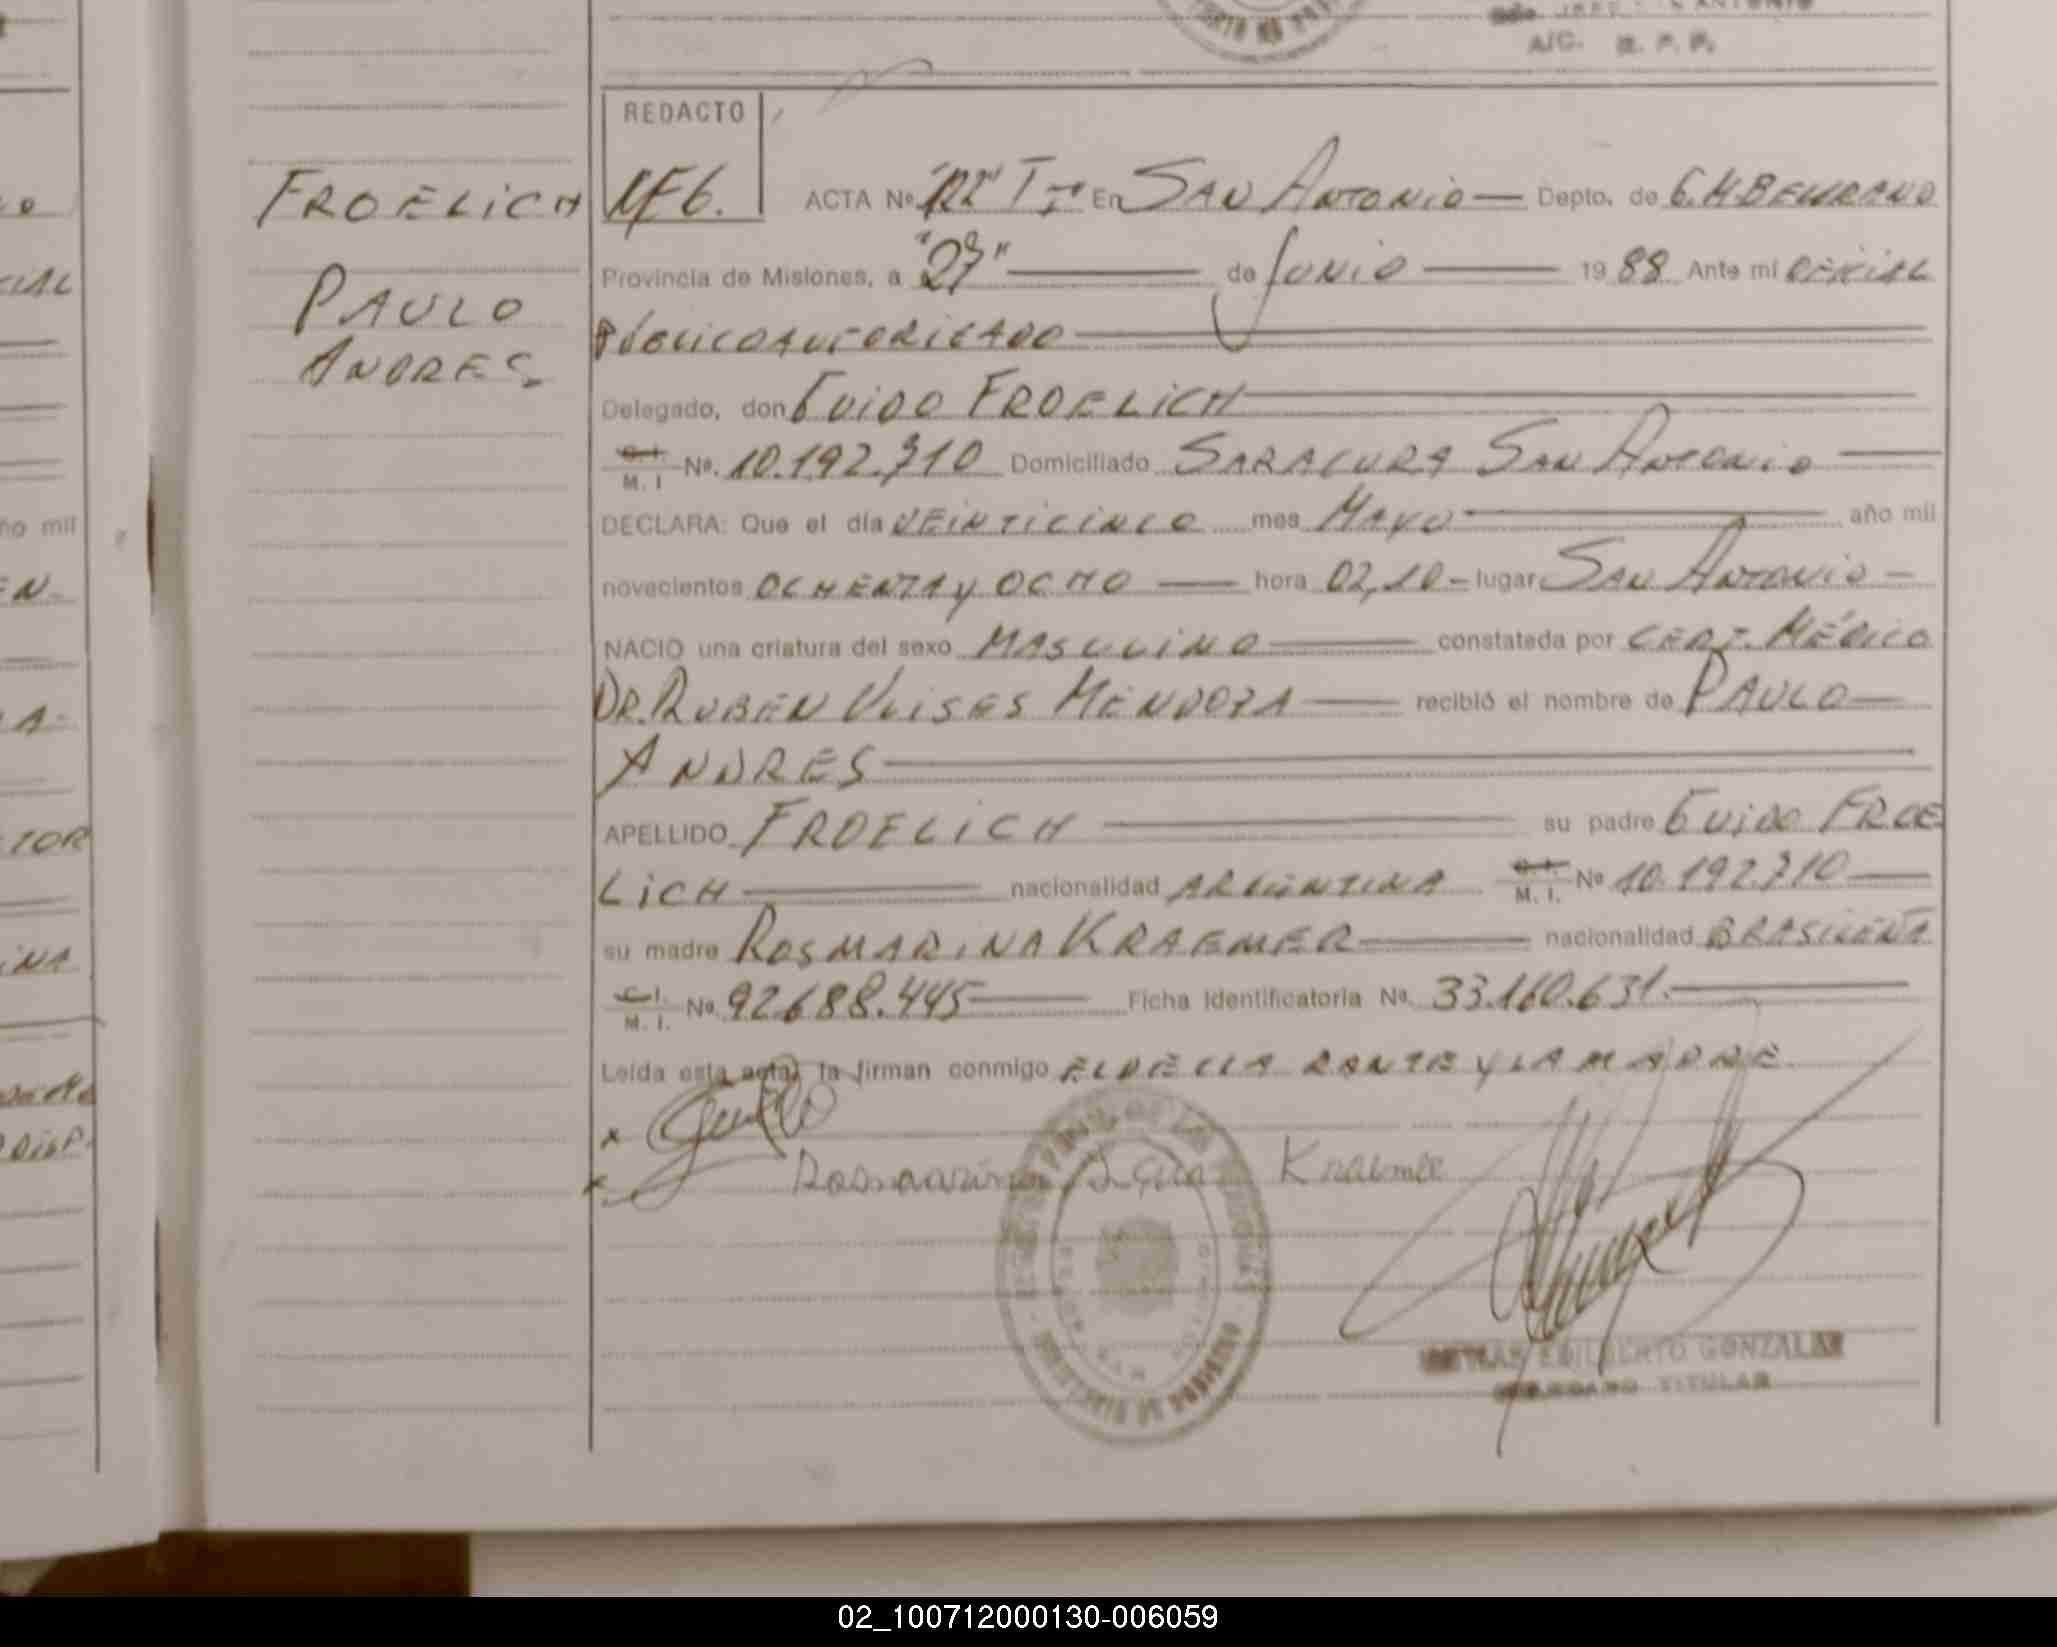 A/C. R. P. P.
REDACTO
FROELICH
ACTA Nº "122" T I En SAN ANTONIO — Depto. de G.M.BELGRANO
Provincia de Misiones, a "27" de JUNIO 1988 Ante mi OFICIAL
PAULO
PÚBLICO AUTORIZADO
ANDRES
Delegado, don GUIDO FROELICH
C.I. M. I Nº. 10.192.710 Domiciliado SARACURA SAN ANTONIO
DECLARA: Que el día VEINTICINCO mes MAYO año mil
novecientos OCHENTA y OCHO hora 02,10 - lugar SAN ANTONIO -
NACIO una criatura del sexo MASCULINO constatada por CERT. MÉDICO
DR. RUBEN ULISES MENDOZA recibió el nombre de PAULO
ANDRES
APELLIDO FROELICH su padre GUIDO FROE
LICH nacionalidad ARGENTINA C.I. M. I. Nº 10.192.710
su madre ROSMARINA KRAEMER nacionalidad BRASILEÑA
C.I. M. I. Nº 92.688.445 Ficha Identificatoria Nº. 33.160.631.
Leída esta acta, la firman conmigo EL DECLARANTE y LA MADRE
x
x Rosmarina Kraemer
EDILBERTO GONZALEZ
TITULAR
02_100712000130-006059